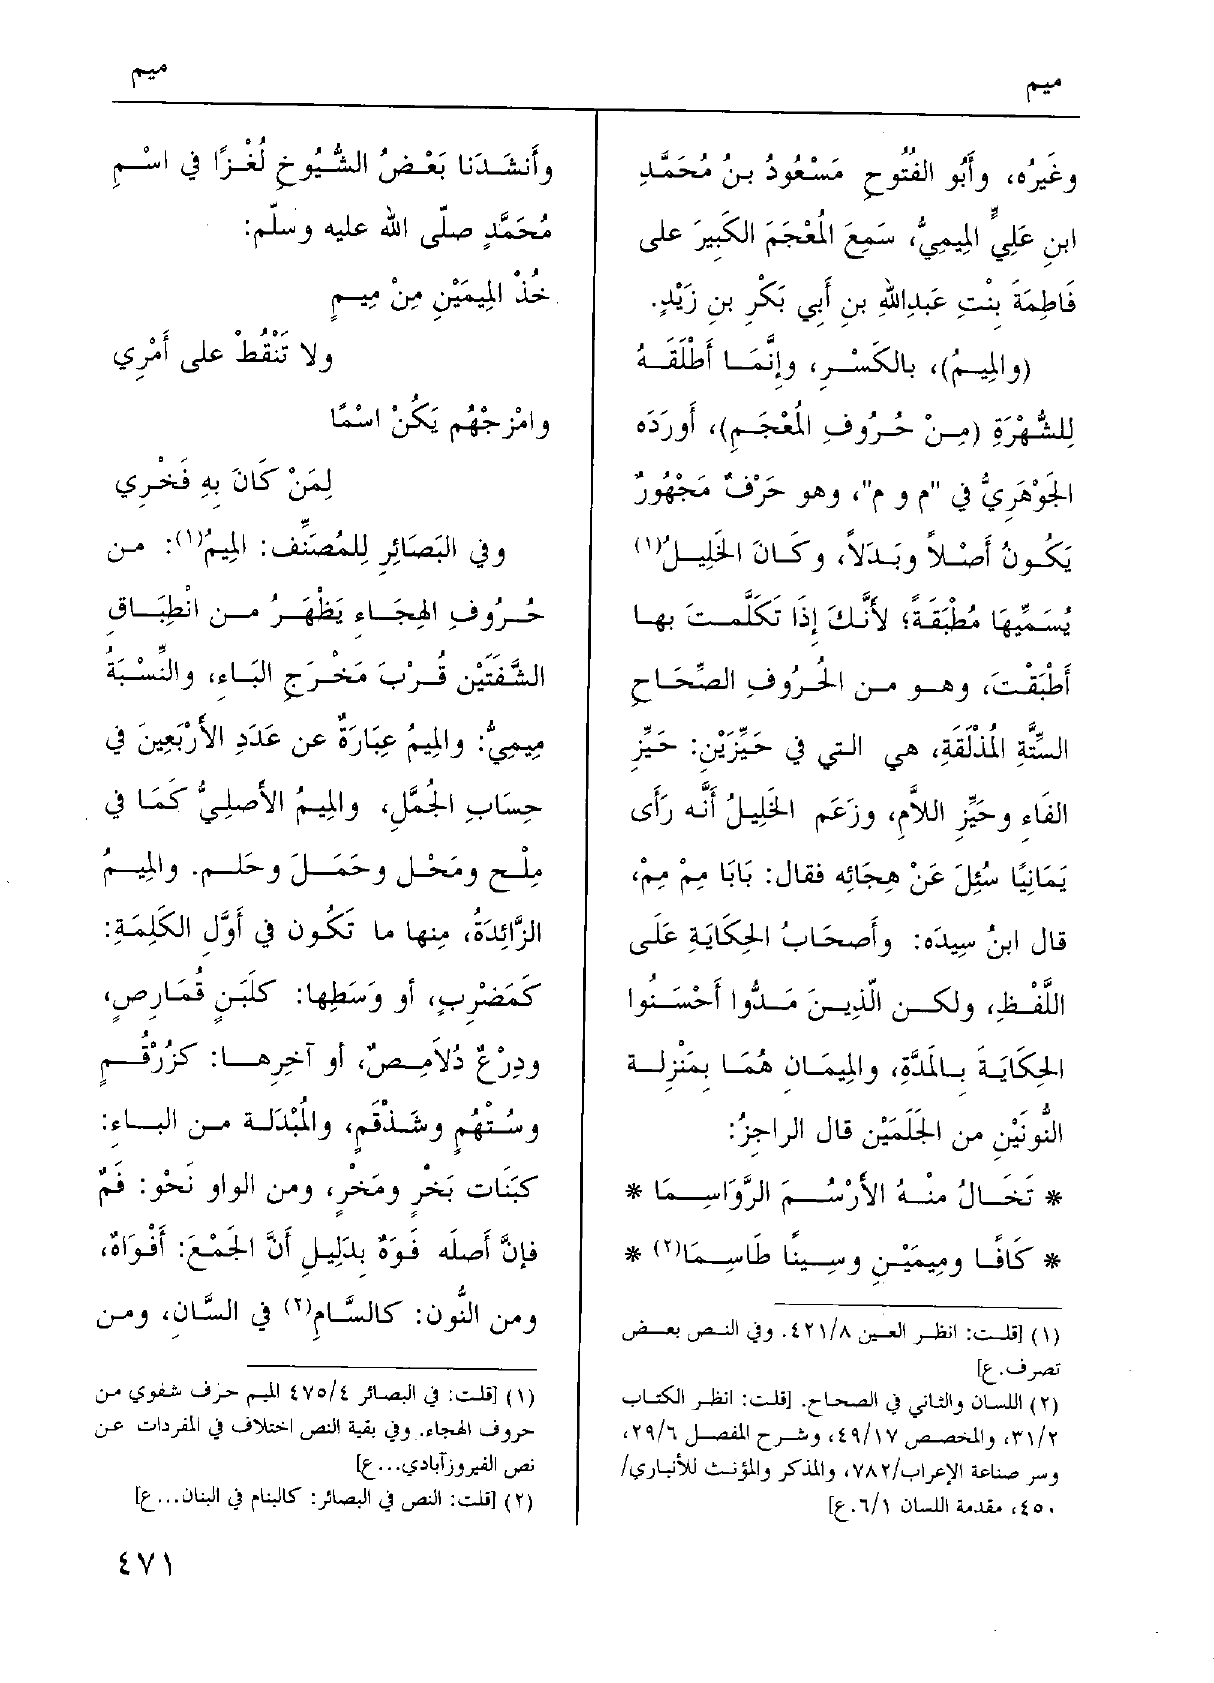 ميم
ميم
وغَيرُه، وأَبُو الفُتُوح مَسْعُودُ بنُ مُحَمَّدِ
ابنِ عَلِيٍّ المِيمِيُّ، سَمِعَ المُعْجَمَ الكَبِيرَ على
فَاطِمَةَ بِنْتِ عَبدِاللهِ بنِ أَبِي بَكْرِ بنِ زَيْدٍ.
(والمِيمُ)، بالكَسْرِ، وإنَّمَا أَطْلَقَهُ
لِلشُّهْرَةِ (مِنْ حُرُوفِ المُعْجَمِ)، أَورَدَه
الجَوْهَرِيُّ في "م و م"، وهو حَرْفٌ مَجْهُورٌ
يَكُونُ أَصْلاً وبَدَلاً، وكَانَ الخَلِيلُ(١)
يُسَمِّيهَا مُطْبَقَةً؛ لأَنَّكَ إذَا تَكَلَّمتَ بها
أَطْبَقْتَ، وهو من الحُرُوفِ الصِّحَاحِ
السِّتَّةِ المُذْلَقَةِ، هي التي في حَيِّزَيْنِ: حَيِّزِ
الفَاءِ وحَيِّزِ اللاَّمِ، وزَعَم الخَلِيلُ أَنَّه رَأَى
يَمَانِيًا سُئِلَ عَنْ هِجَائِه فقال: بَابَا مِمْ مِمْ،
قال ابنُ سِيدَه: وأَصحَابُ الحِكَايَةِ عَلَى
اللَّفْظِ، ولكن الّذِينَ مَدُّوا أَحْسَنُوا
الحِكَايَةَ بالمَدَّةِ، والمِيمَان هُمَا بِمَنْزِلة
النُّونَيْنِ من الجَلَمَيْنِ قال الراجِزُ:
* تَخَالُ منْهُ الأَرْسُمَ الرَّوَاسِمَا *
* كَافًا ومِيمَيْنِ وسِينًا طَاسِمَا(٢) *
(١) [قلت: انظر العين ٤٢١/٨. وفي النص بعض
تصرف.ع]
(٢) اللسان والثاني في الصحاح. [قلت: انظر الكتاب
٣١/٢، والمخصص ٤٩/١٧، وشرح المفصل ٢٩/٦،
وسر صناعة الإعراب/٧٨٢، والمذكر والمؤنث للأنباري/
٤٥٠، مقدمة اللسان ٦/١.ع]
وأَنشَدَنا بَعْضُ الشُّيُوخِ لُغْزًا في اسْمِ
مُحَمَّدٍ صلّى الله عليه وسلّم:
خُذْ المِيمَيْنِ مِنْ مِيمٍ
ولا تَنْقُطْ على أَمْرِي
وامْزجْهُم يَكُنْ اسْمًا
لِمَنْ كَانَ بِهِ فَخْرِي
وفي البَصَائِرِ لِلمُصَنِّف: المِيمُ(١): من
حُرُوفِ الهِجَاءِ يَظْهَرُ من انْطِبَاقِ
الشَّفَتَيْن قُرْبَ مَخْرَجِ البَاءِ، والنِّسْبَةُ
مِيمِيٌّ: والمِيمُ عِبَارَةٌ عن عَدَدِ الأَرْبَعِينَ في
حِسَابِ الجُمَّلِ، والمِيمُ الأَصلِيُّ كَمَا في
مِلْح ومَحْل وحَمَلَ وحَلم. والمِيمُ
الزَّائِدَةُ، مِنها ما تَكُون في أَوَّلِ الكَلِمَةِ:
كَمَضْرِبٍ، أو وَسَطِها: كلَبَنٍ قُمَارِصٍ،
ودِرْعٌ دُلاَمِصٌ، أو آخِرِها: كزُرْقُمٍ
وسُتْهُمٍ وشَدْقَمٍ، والمُبْدَلة من الباء:
كَبَنَات بَخْرٍ ومَخْرٍ، ومن الواو نَحْو: فَمٌ
فإنَّ أَصلَه فَوَهٌ بِدَلِيلِ أَنَّ الجَمْعَ: أَفْوَاهٌ،
ومن النُّون: كالسَّامِ(٢) في السَّان، ومن
(١) [قلت: في البصائر ٤٧٥/٤ الميم حرف شفوي من
حروف الهجاء. وفي بقية النص اختلاف في المفردات عن
نص الفيروزآبادي...ع]
(٢) [قلت: النص في البصائر: كالبنام في البنان...ع]
٤٧١